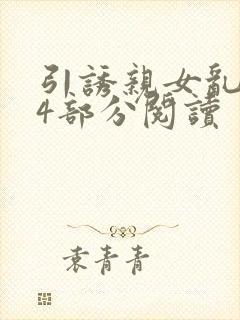 引誘親女亂
4部分閱讀
袁青青